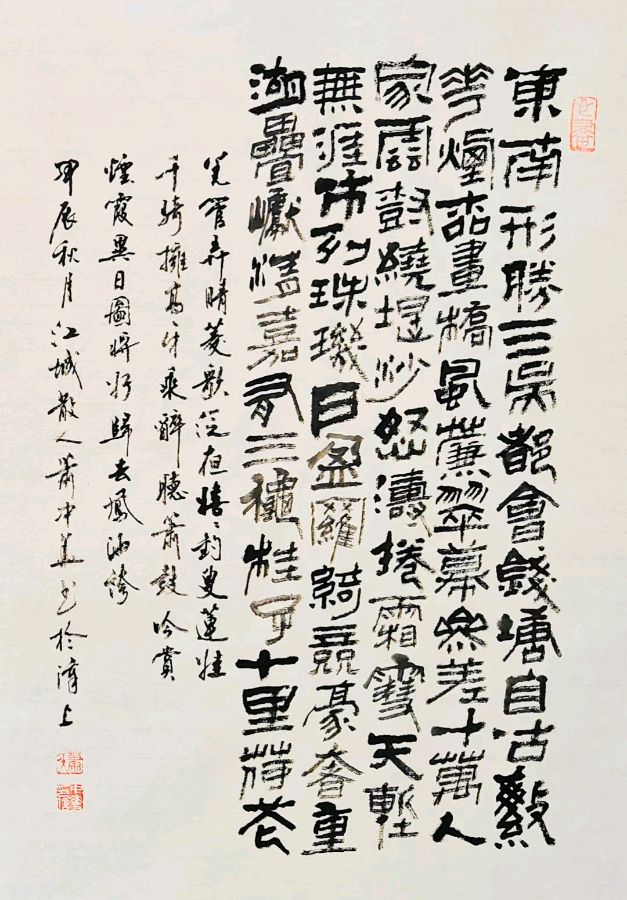 東南形勝三吳都會錢塘自古繁
華煙柳畫橋風簾翠幕參差十萬人
家雲樹繞堤沙怒濤捲霜雪天塹
無涯市列珠璣日盈羅綺競豪奢重
湖疊巘清嘉有三穐桂子十里荷花
羌管弄晴菱歌泛夜嬉〻釣叟蓮娃
千騎擁高牙乘醉聽簫鼓吟賞
煙霞異日圖將好歸去鳳池誇
甲辰秋月江城散人蕭 書於漳上